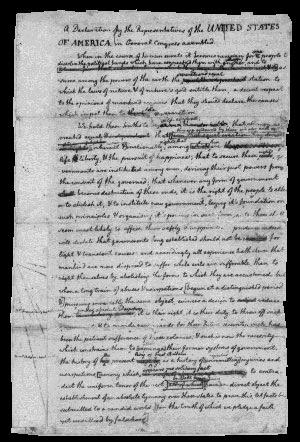 A Declaration by the Representatives of the UNITED STATES
OF AMERICA, in General Congress assembled.
When in the course of human events it becomes necessary for a people to
dissolve the political bands which have connected them with another, and to
-sume among the powers of the earth the station to
which the laws of nature & of nature's god entitle them, a decent respect
to the opinions of mankind requires that they should declare the causes
which impel them to the separation.
We hold these truths to be that all men are
created equal
life, & liberty, & the pursuit of happiness; that to secure these, go-
-vernments are instituted among men, deriving their just powers from
the consent of the governed; that whenever any form of government
becomes destructive of these ends, it is the right of the people to alter
or to abolish it, & to institute new government, laying it's foundation on
such principles & organising it's powers in such form, as to them shall
seem most likely to effect their safety & happiness. prudence indeed
will dictate that governments long established should not be changed for
light & transient causes: and accordingly all experience hath shewn that
mankind are more disposed to suffer while evils are sufferable, than to
right themselves by abolishing the forms to which they are accustomed. but
when a long train of abuses & usurpations [begun at a distinguished period
& pursuing invariably the same object, evinces a design to reduce
them it is their right, it is their duty, to throw off such
& to provide new guards for their future security. such has
been the patient sufferance of these colonies; & such is now the necessity
which constrains them to [expunge] their former systems of government.
the history of the present is a history of injuries and
usurpations [among which,
-dict the uniform tenor of the rest, all of which have in direct object the
establishment of an absolute tyranny over these states. to prove this, let facts be
submitted to a candid world [for the truth of which we pledge a faith
yet unsullied by falsehood]